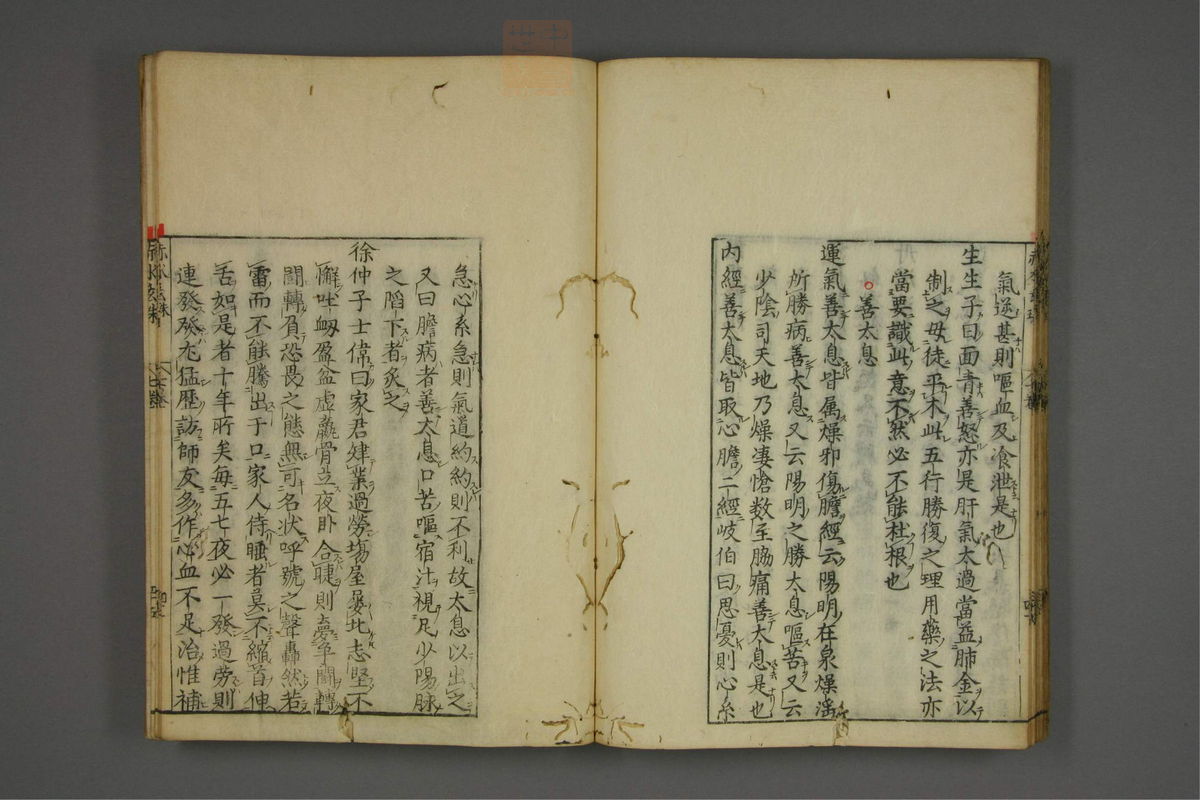 氣逆甚則嘔血及飡泄是也
生生子曰面青善怒亦是肝氣太過當益肺金以
制之毋徒平木此五行勝復之理用藥之法亦
當要識此意不然必不能杜根也
善太息
運氣善太息皆属燥邪傷膽經云陽明在泉燥滛
所勝病善太息又云陽明之勝太息嘔苦又云
少陰司天地乃燥凄愴数至脇痛善太息是也
内經善太息皆取心膽二經岐伯曰思憂則心系
急心系急則氣道約約則不利故太息以出之
又曰膽病者善太息口苦嘔宿汁視足少陽脉
之陷下者炙之
徐仲子士偉曰家君肄業過勞塲屋屡北志堅不
懈吐衂盈盆虚羸骨立夜卧合睫則夢軍鬪轉
鬪轉負恐畏之態無可名状呼號之聲轟然若
雷而不能騰出于口家人侍睡者莫不縮首伸
舌如是者十年所矣毎五七夜必一發過勞則
連發發尤猛歴訪師友多作心血不足治惟補